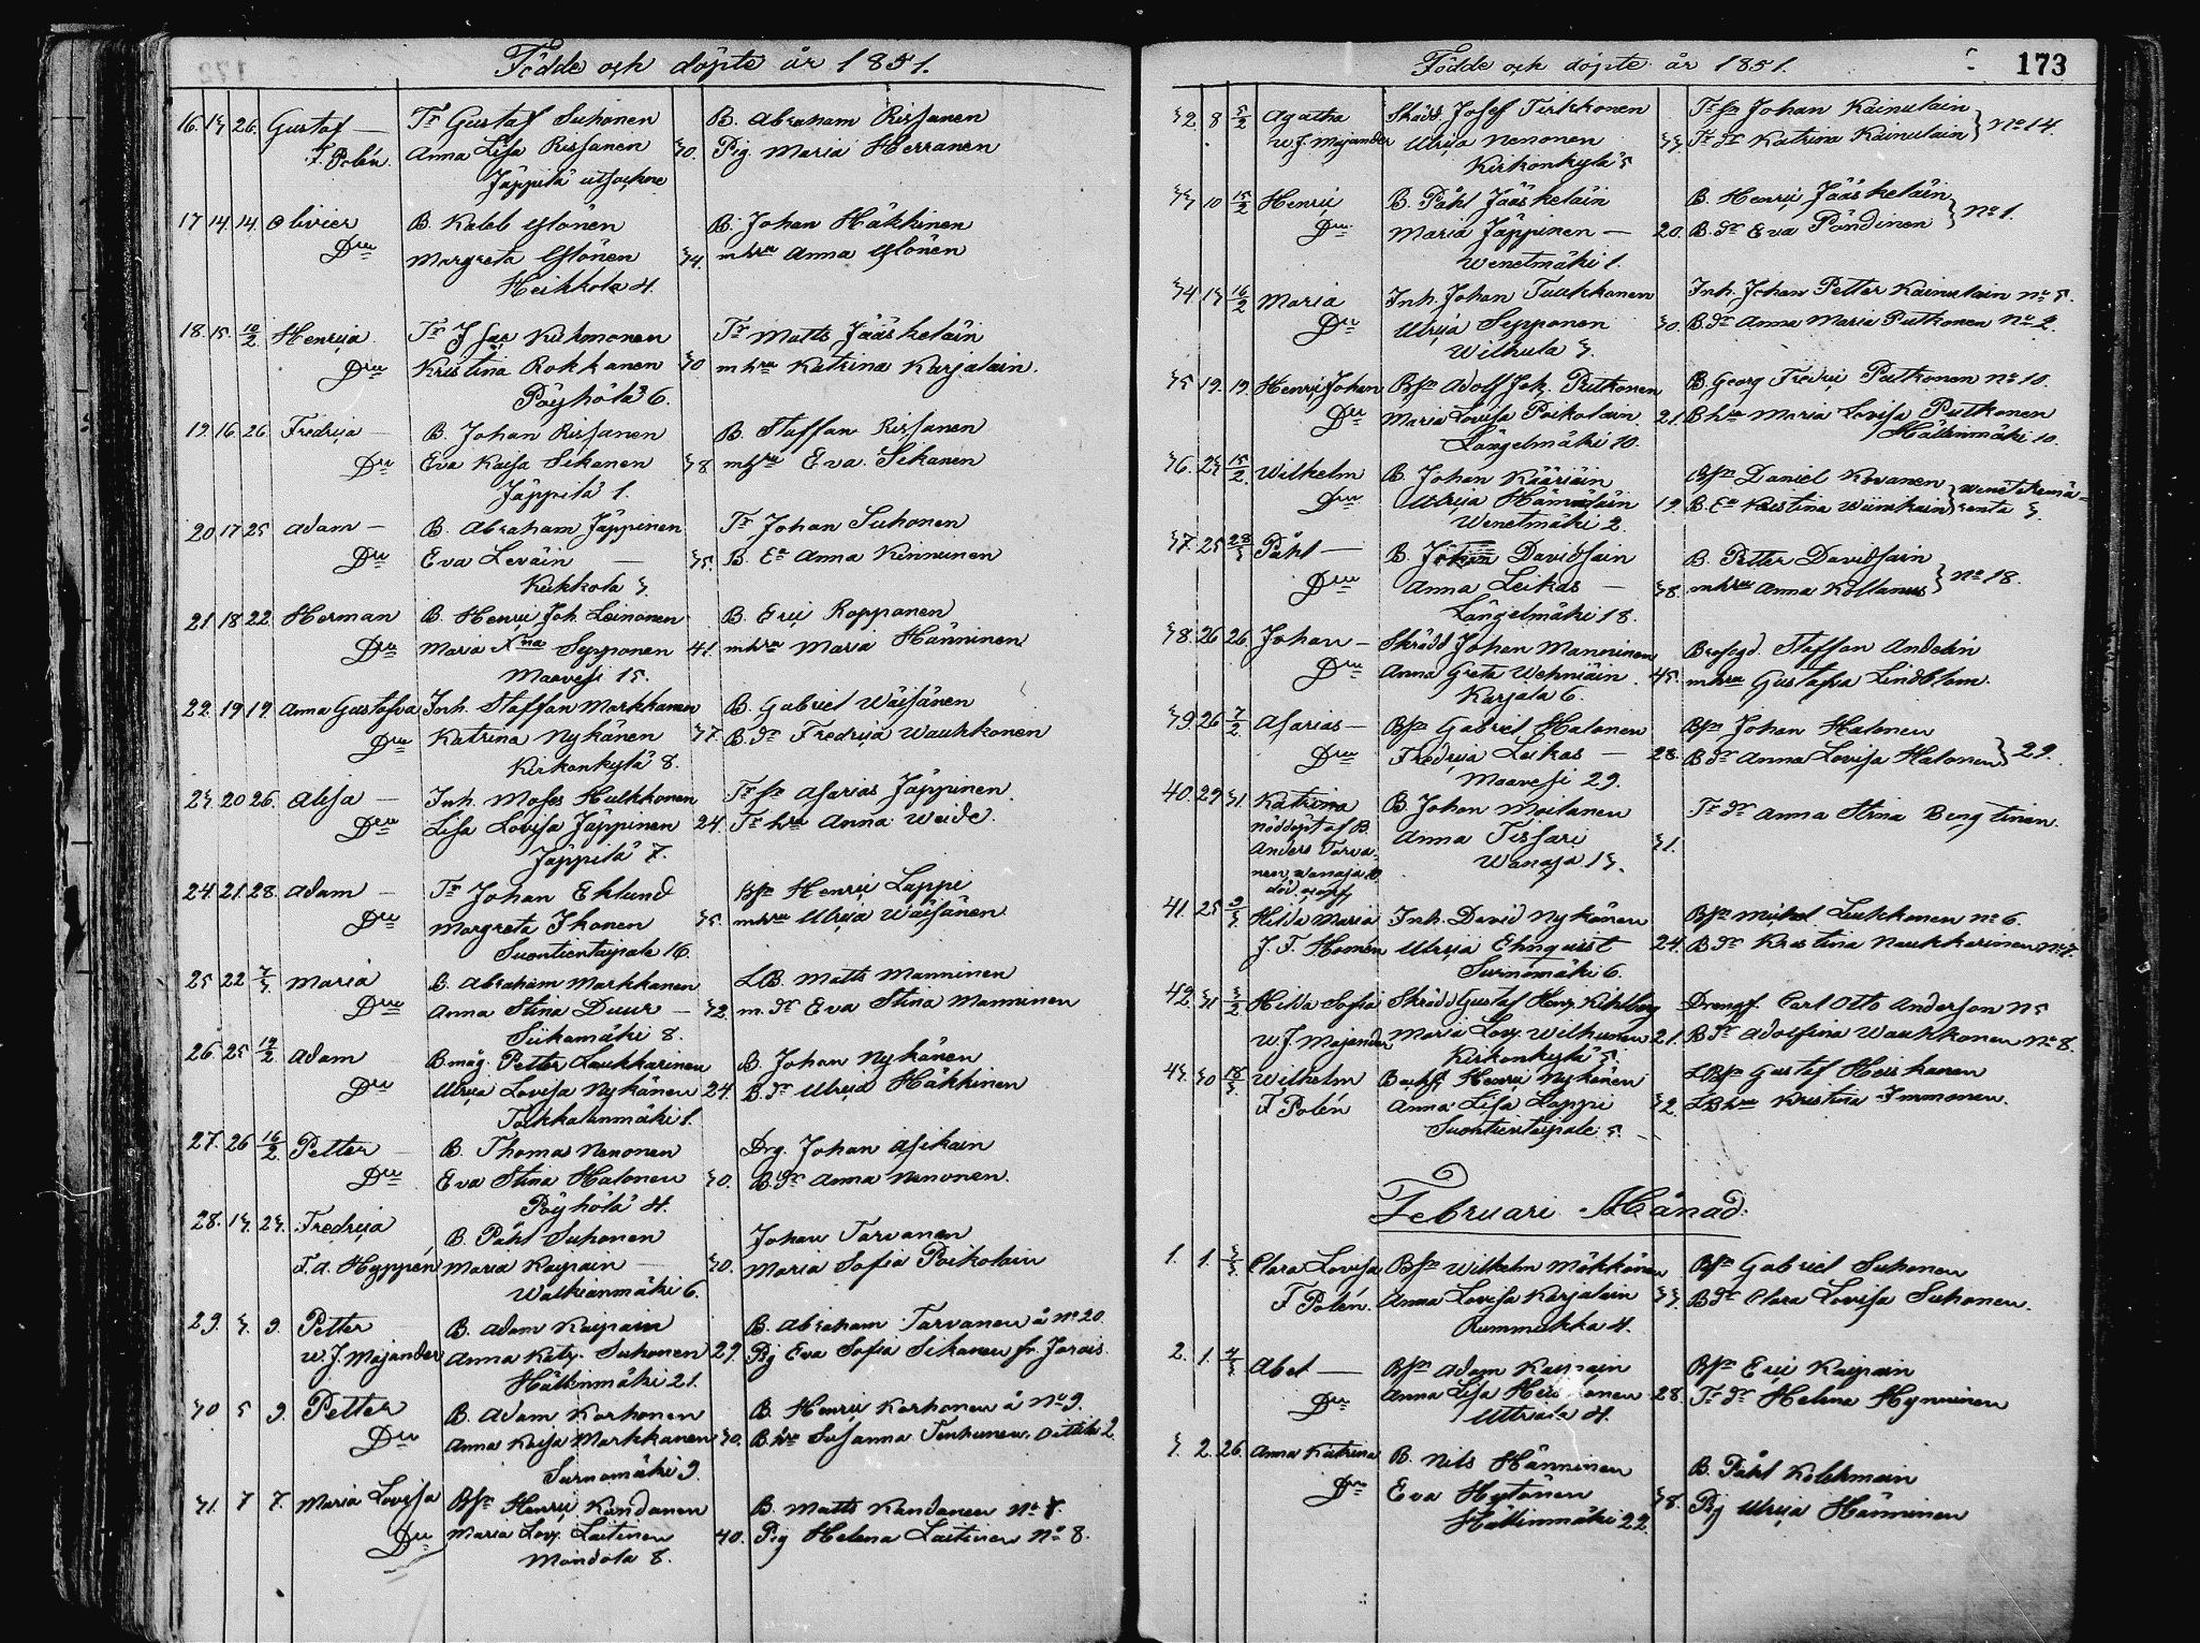 Födde och döpte år 1851.
16. 13 26. Gustaf — Tr Gustaf Suhonen B. Abraham Rissanen
F. Polén. Anna Lisa Rissanen 30. Pig. Maria Herranen
Jäppilä utsockne
17 14. 14. Olivier B. Kaleb Ylönen B. Johan Häkkinen
Dre Margreta Ylönen 34. m hru Anna Ylönen
Heikkola 4.
18. 15. 10/2 Henrica Tr Isac Kuhmonen Tr Matts Jääskeläin
Dre Kristina Rokkanen 30 m hru Katrina Karjalain.
Pöyhölä 6.
19. 16. 26 Fredrica B. Johan Rissanen B. Staffan Rissanen
Dre Eva Kaisa Sikanen 38 m hru Eva Sikanen
Jäppilä 1.
20 17 25 Adam — B. Abraham Jäppinen Tr Johan Suhonen
Dre Eva Leväin — 35. B. Ea Anna Kinnunen
Kukkola 3.
21. 18 22 Herman B. Henric Joh. Leinonen B. Eric Ropponen
Dre Maria Xna Sepponen 41. m hru Maria Hänninen
Maavesi 15.
22. 19 19. Anna Gustafva Inh. Staffan Markkanen B. Gabriel Wäisänen
Dre Katrina Nykänen 37. B. dr Fredrica Waukkonen
Kirkonkylä 8.
23. 20 26. Alisa — Inh. Moses Hulkkonen Tr sn Asarias Jäppinen
Dre Lisa Lovisa Jäppinen 24. Tr hru Anna Weide.
Jäppilä 7.
24. 21. 28. Adam — Tr Johan Eklund Bsn Henric Lappi
Dre Margreta Ihonen 35. m hru Ulrica Wäisänen
Suontientaipale 16.
25 22 7/3 Maria B. Abraham Markkanen LB. Matts Manninen
Dre Anna Stina Duur — 32. m. dr Eva Stina Manninen
Siikamäki 8.
26. 25 19/2 Adam B. måg. Petter Laukkarinen B. Johan Nykänen
Dre Ulrica Lovisa Nykänen 24. B. dr Ulrica Häkkinen
Tokkalanmäki 1.
27. 26 16/2 Petter — B. Thomas Nenonen Drg. Johan Asikain
Dre Eva Stina Halonen 30. B. dr Anna Nenonen.
Pöyhölä 4.
28. 13. 23. Fredrica B. Påhl Suhonen Johan Tarvanen
F. A. Hyppén Maria Kaipain — 30. Maria Sofia Poikolain
Walkianmäki 6.
29. 3. 9. Petter B. Adam Kaipain B. Abraham Tarvanen å No 20.
W. J. Majander Anna Katr. Suhonen 29. Pig Eva Sofia Sikanen fr. Jorois.
Hällinmäki 21.
30 5 9. Petter B. Adam Korhonen B. Henric Korhonen å No 9.
Dre Anna Kaisa Markkanen 30. B. hru Susanna Tenhunen
Surnomäki 9.
31. 7 7. Maria Lovisa Bsn Henric Kandanen B. Matts Kandanen No 7.
Dre Maria Lov. Laitinen 40. Pig Helena Laitinen No 8.
Montola 8.
Födde och döpte år 1851. 173
32. 8 5/2 Agatha Skrädd. Josef Tirkkonen Tr sn Johan Kainulain } No 14.
W. J. Majander Ulrica Nenonen 33. Tr dr Katrina Kainulain
Kirkonkylä 5
33 10 15/2 Henric B. Påhl Jääskeläin B. Henric Jääskeläin } No 1.
Dre Maria Jäppinen — 20. B. dr Eva Pöndinen
Wenetmäki 1.
34 13 16/2 Maria Inh. Johan Tuukkanen Inh. Johan Petter Kainulain No 5.
Dre Ulrica Sepponen 30. B. dr Anna Maria Putkonen No 2.
Wilhula 3.
35 19. 19. Henric Johan Bsn Adolf Joh. Putkonen B. Georg Fredric Putkonen No 10.
Dre Maria Lovisa Poikolain 21. B hru Maria Lovisa Putkonen
Längelmäki 10. Hällinmäki 10.
36. 23 15/2. Wilhelm B. Johan Kääriäin Bsn Daniel Kovanen } Wenetekemä-
Dre Ulrica Hämäläin 19. B. Ea Kristina Wiinikain ranta 3.
Wenetmäki 2.
37. 25 28/3 Påhl — B. Johan Davidsain B. Petter Davidsain } No 18.
Dre Anna Leikas — 38. m hru Anna Kollanus
Längelmäki 18.
38. 26 26. Johan — Skrädd Johan Manninen Brofogd. Staffan Andelin
Dre Anna Greta Wehniäin 45. m hru Gustafva Lindblom.
Karjala 6.
39. 26 7/2 Asarias — Bsn Gabriel Halonen Bsn Johan Halonen } 29.
Dre Fredrica Leikas — 28. B dr Anna Lovisa Halonen
Maavesi 29.
40. 29 31. Katrina B. Johan Moilanen Tr dr Anna Stina Bengtinen.
nöddöpt af B. Anna Tissari 31.
Anders Tarva- Wanaja 13.
nen, Wanaja 10.
41. 25 9/3. Hilda Maria Inh. David Nykänen Bsn Michel Luukkonen No 6.
J. F. Homén Ulrica Ehnquist 24. B dr Kristina Naukkarinen No 7.
Surnomäki 6.
42. 31 3/2 Hilda Sofia Skrädd Gustaf Henr. Kihlberg Drengf. Carl Otto Anderson No 5
W. J. Majander Maria Lov. Wilhunen 21. B dr Adolfina Waukkonen No 8.
Kirkonkylä 5.
43. 30 18/3. Wilhelm Backst. Henric Nykänen LBsn Gustaf Heiskanen
F Polén Anna Lisa Lappi 32. LB hru Kristina Immonen.
Suontientaipale 5.
Februari Månad.
1. 1. 3/3. Clara Lovisa Bsn Wilhelm Mökkönen Bsn Gabriel Suhonen
F Polén. Anna Lovisa Karjalain 33. B dr Clara Lovisa Suhonen.
Rummukka 4.
2. 1. 4/3 Abel — Bsn Adam Kaipain Bsn Eric Kaipain
Dre Anna Lisa Heiskanen 28. Tr dr Helena Hynninen
Uttrala 4.
3. 2. 26. Anna Katrina B. Nils Hänninen B. Påhl Kolehmain
Dre Eva Hytönen 38. Pig Ulrica Hänninen
Hällinmäki 22.